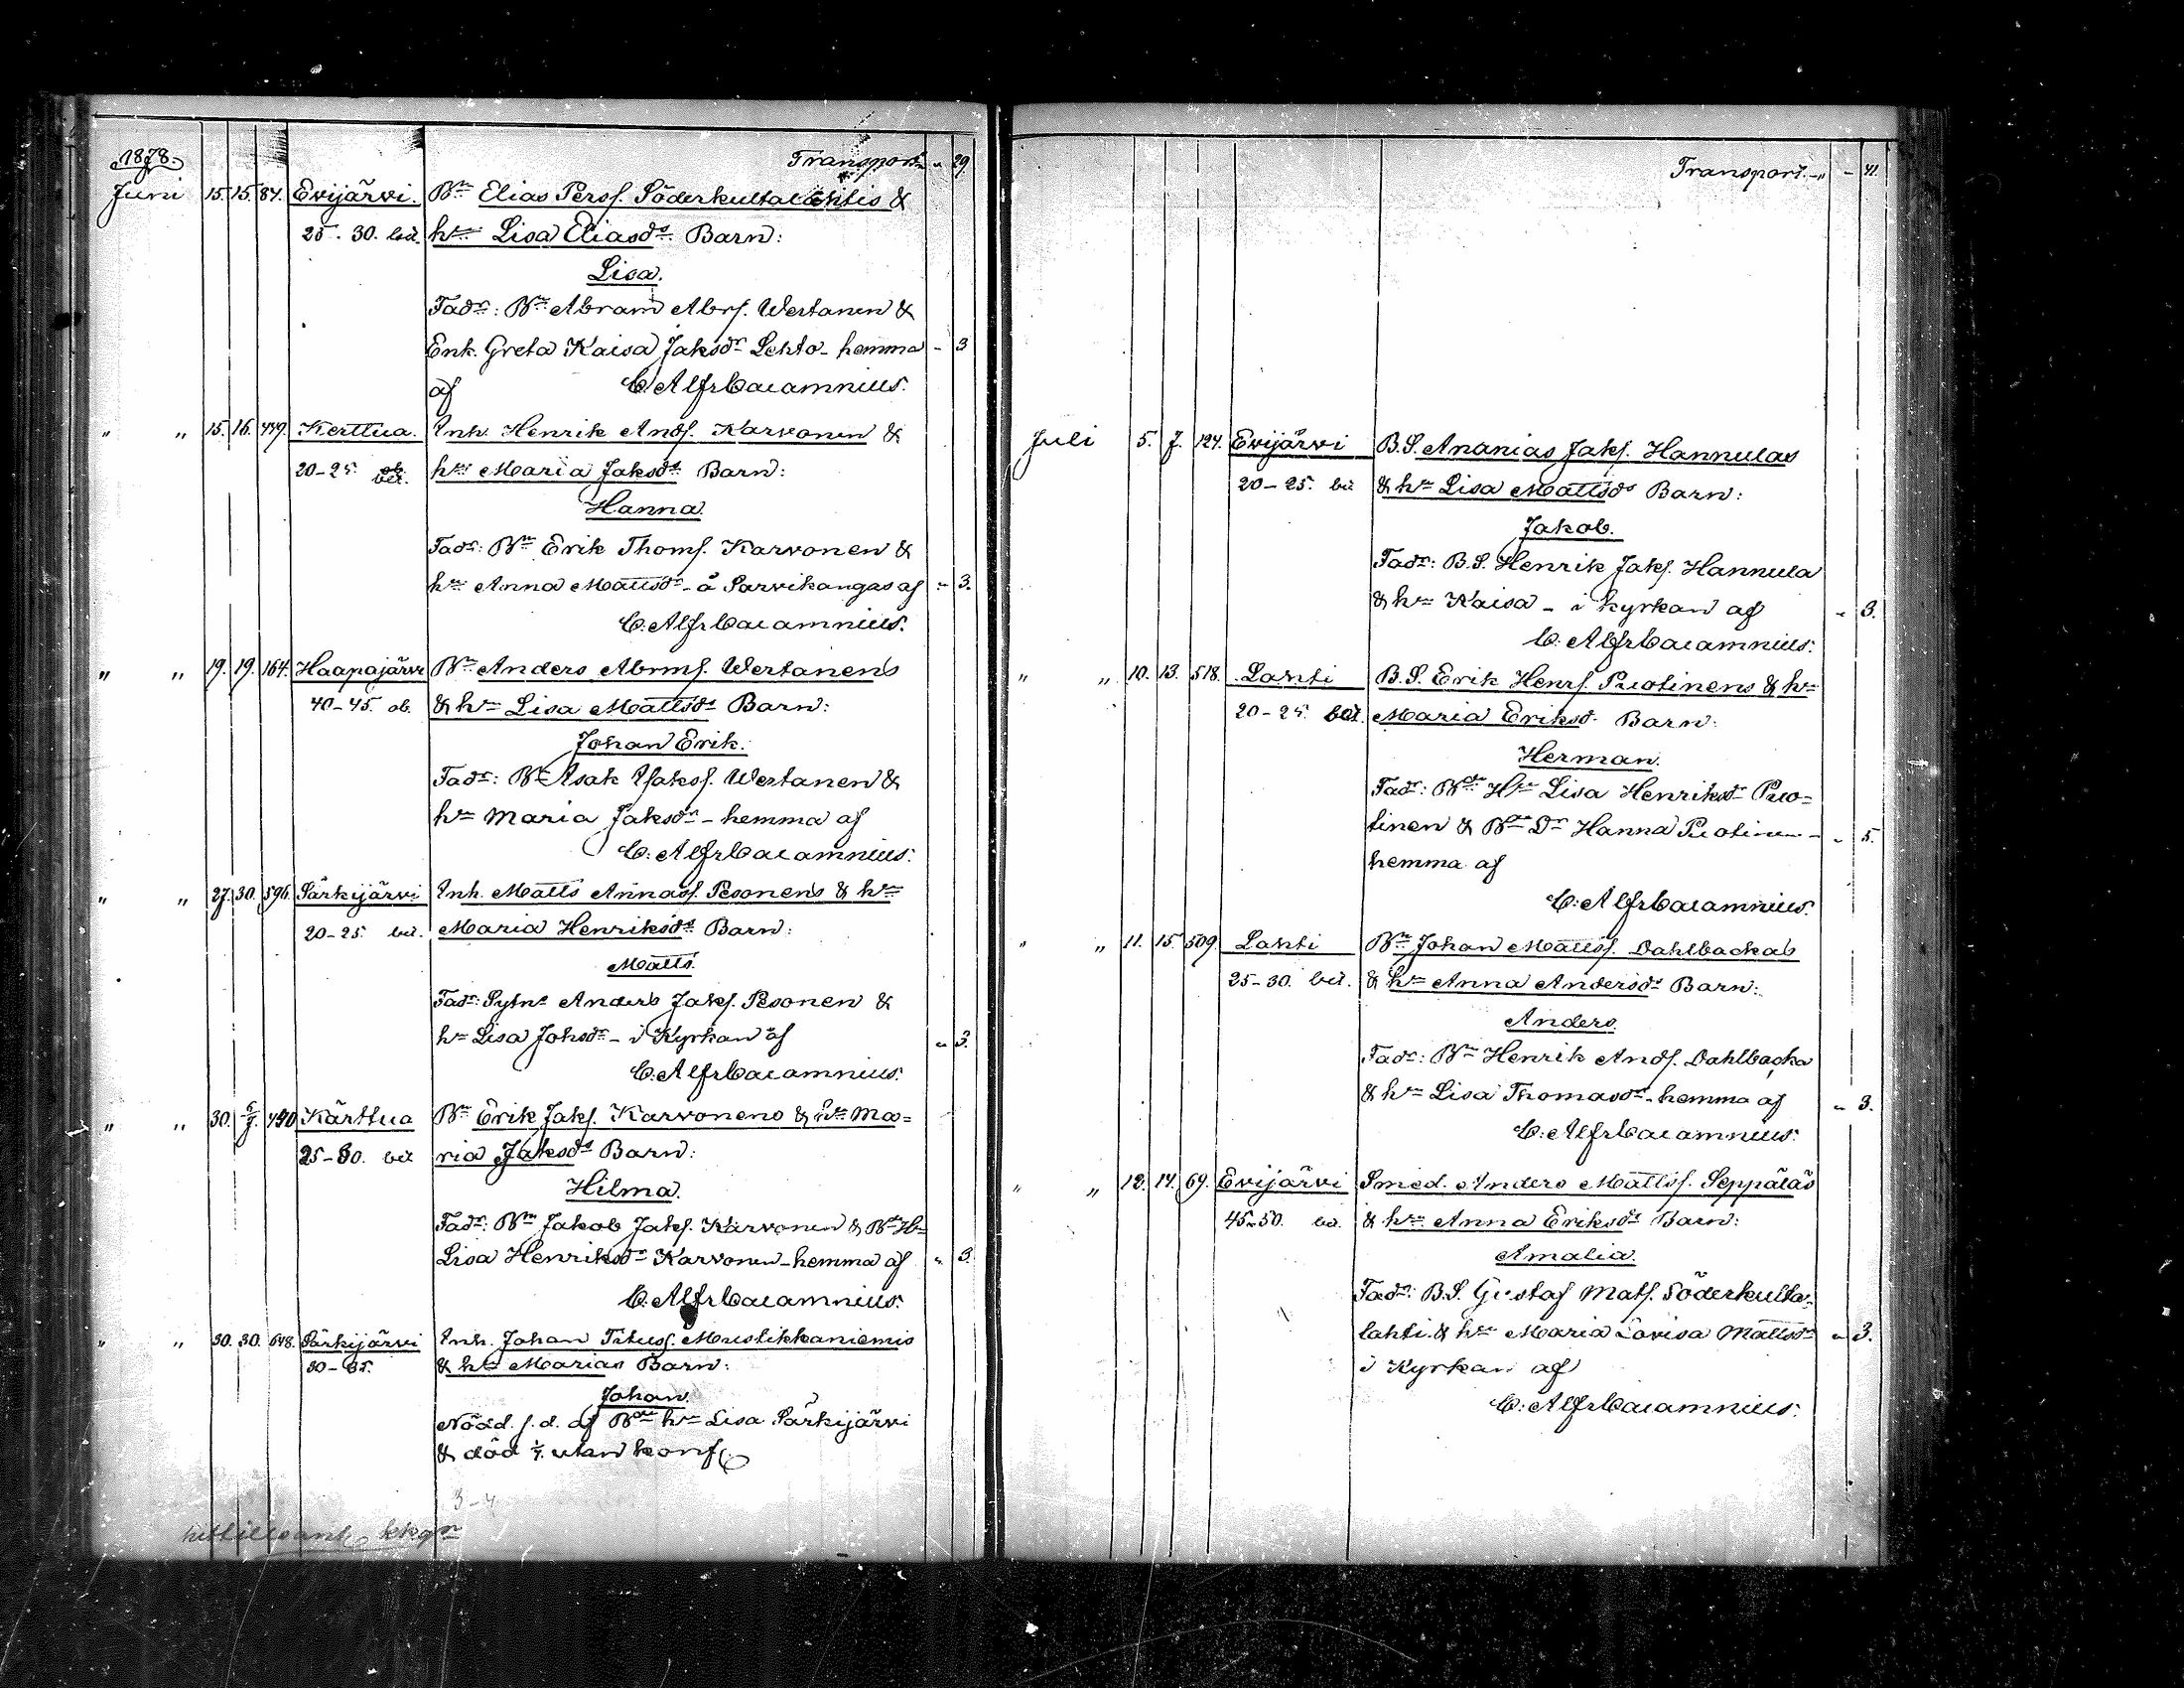 1878. Transport " 29.
Juni 15. 15. 87. Evijärvi. Bn Elias Perss. Söderkultalahtis &
25-30. bet. hr Lisa Eliasdr Barn:
Lisa.
Fadr: Bn Abram Abrs. Wertanen &
Enk. Greta Kaisa Jaksdr Lehto - hemma - 3
af C: Alfr Cajamnius.
" " 15. 16. 449. Kerttua. Inh. Henrik Ands. Karvonen &
20-25 bet. hr Maria Jaksdr Barn:
Hanna.
Fadr: Bn Erik Thoms. Karvonen &
hn Anna Mattsdr - å Sarvikangas af " 3.
C: Alfr Cajamnius.
" " 19. 19. 164. Haapajärvi Bn Anders Abrms. Wertanens
40-45. ob. & hn Lisa Mattsdr Barn:
Johan Erik.
Fadr: Bn Isak Isaks. Wertanen &
hn Maria Jaksdr - hemma af
C: Alfr Cajamnius.
" " 27. 30. 596. Särkijärvi Inh. Matts Annass. Pesonens & hn
20-25 bet. Maria Henriksdr Barn:
Matts.
Fadr: Sytn. Anders Jaks. Pesonen &
hn Lisa Johsdr - i Kyrkan af " 3.
C: Alfr Cajamnius.
" " 30. 5/7. 440 Kärttua Bn Erik Jaks. Karvonens & hn Ma=
25-30. bet ria Jaksdr Barn:
Hilma.
Fadr: Bn Jakob Jaks. Karvonen & Bde Hn
Lisa Henriksdr Karvonen - hemma af " 3.
C: Alfr Cajamnius.
" " 30. 30. 648. Särkijärvi Inh. Johan Tituss. Mustikkaniemis
30-35. & hn Marias Barn:
Johan.
Nödd. s. d. af Bde hn Lisa Särkijärvi
& död 1/7. utan konf.
3-4
kkgn
Transport. " - 41.
Juli 5. 7. 124. Evijärvi B.S. Ananias Jaks. Hannulas
20-25. bet & hn Lisa Mattsdr Barn:
Jakob.
Fadr: B.S. Henrik Jaks. Hannula
& hn Kaisa - i kyrkan af " 3.
C: Alfr Cajamnius.
" " 10. 13. 518. Lahti B.S. Erik Henrs. Puotinens & hn
20-25. bet. Maria Eriksd. Barn:
Herman.
Fadr: Bde Hn Lisa Henriksdr Puo=
tinen & Bde Dr Hanna Puotinen - " 5.
hemma af
C: Alfr Cajamnius.
" " 11. 15. 509. Lahti Bn Johan Mattss. Dahlbackas
25-30. bet. & hn Anna Andersdr Barn:
Anders.
Fadr: Bn Henrik Ands. Dahlbacka
& hn Lisa Thomasdr - hemma af " 3.
C: Alfr Cajamnius.
" " 12. 14. 69. Evijärvi Smed. Anders Mattss. Seppäläs
45-50. bet. & hn Anna Eriksdr Barn:
Amalia.
Fadr: B.S. Gustaf Mats. Söderkulta-
lahti & hn Maria Lovisa Mattsdr " 3.
i Kyrkan af
C: Alfr Cajamnius.